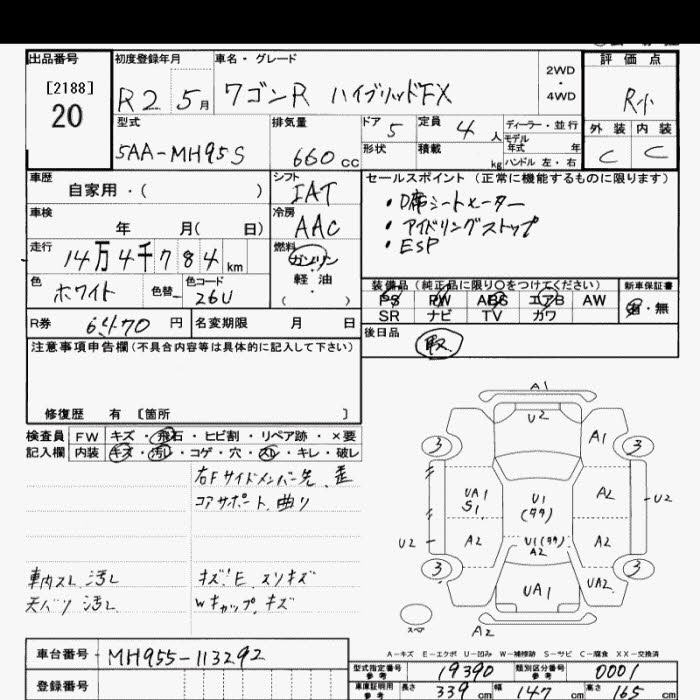 出品番号 初度登録年月 車名・グレード 評価点
[2188]
20
R2 5月 ワゴンR ハイブリッドFX 2WD・4WD R小
型式 排気量 ドア 5 定員 4人 ディーラー・並行 外装 内装
5AA-MH95S 660cc 形状 積載 kg モデル年式 年 C C
ハンドル 左・右
車歴 自家用・( ) シフト IAT セールスポイント (正常に機能するものに限ります)
・D席シートヒーター
車検 年 月( 日) 冷房 AAC ・アイドリングストップ
・ESP
走行 14万4千784km 燃料 ガソリン
軽油
( )
色 ホワイト 色替 色コード 26U
装備品 (純正品に限り○をつけてください) 新車保証書
PS PW ABS エアB AW 有・無
SR ナビ TV カワ
R券 6470円 名変期限 月 日 後日品 取
注意事項申告欄(不具合内容等は具体的に記入して下さい)
修復歴 有 [箇所 ]
検査員 FW キズ・飛石・ヒビ割・リペア跡・×要
記入欄 内装 キズ・汚レ・コゲ・穴・スレ・キレ・破レ
右Fサイドメンバー先、歪
コアサポート、曲り
車内スレ汚レ キズ!E スリキズ
天バリ汚レ Wキャップ、キズ
A1
U2
3 A1 3
UA1 S1 U1(タタ) A2 U2
U2 A2 U1(タタ) A2 A2
3 UA1 UA2 3
スペア A2
A-キズ E-エクボ U-凹み W-補修跡 S-サビ C-腐食 XX-交換済
車台番号 MH95S-113292
登録番号
型式指定番号 参考 19390 類別区分番号 参考 0001
車庫証明用 参考 長さ 339cm 幅 147cm 高さ 165cm